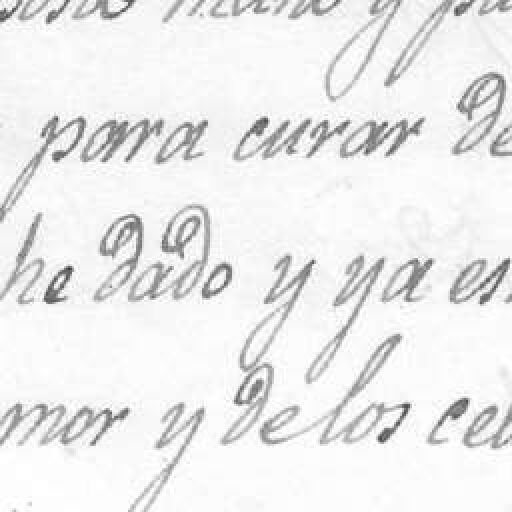 mano y
para curar de
he dado y ya es
mor y de los cel